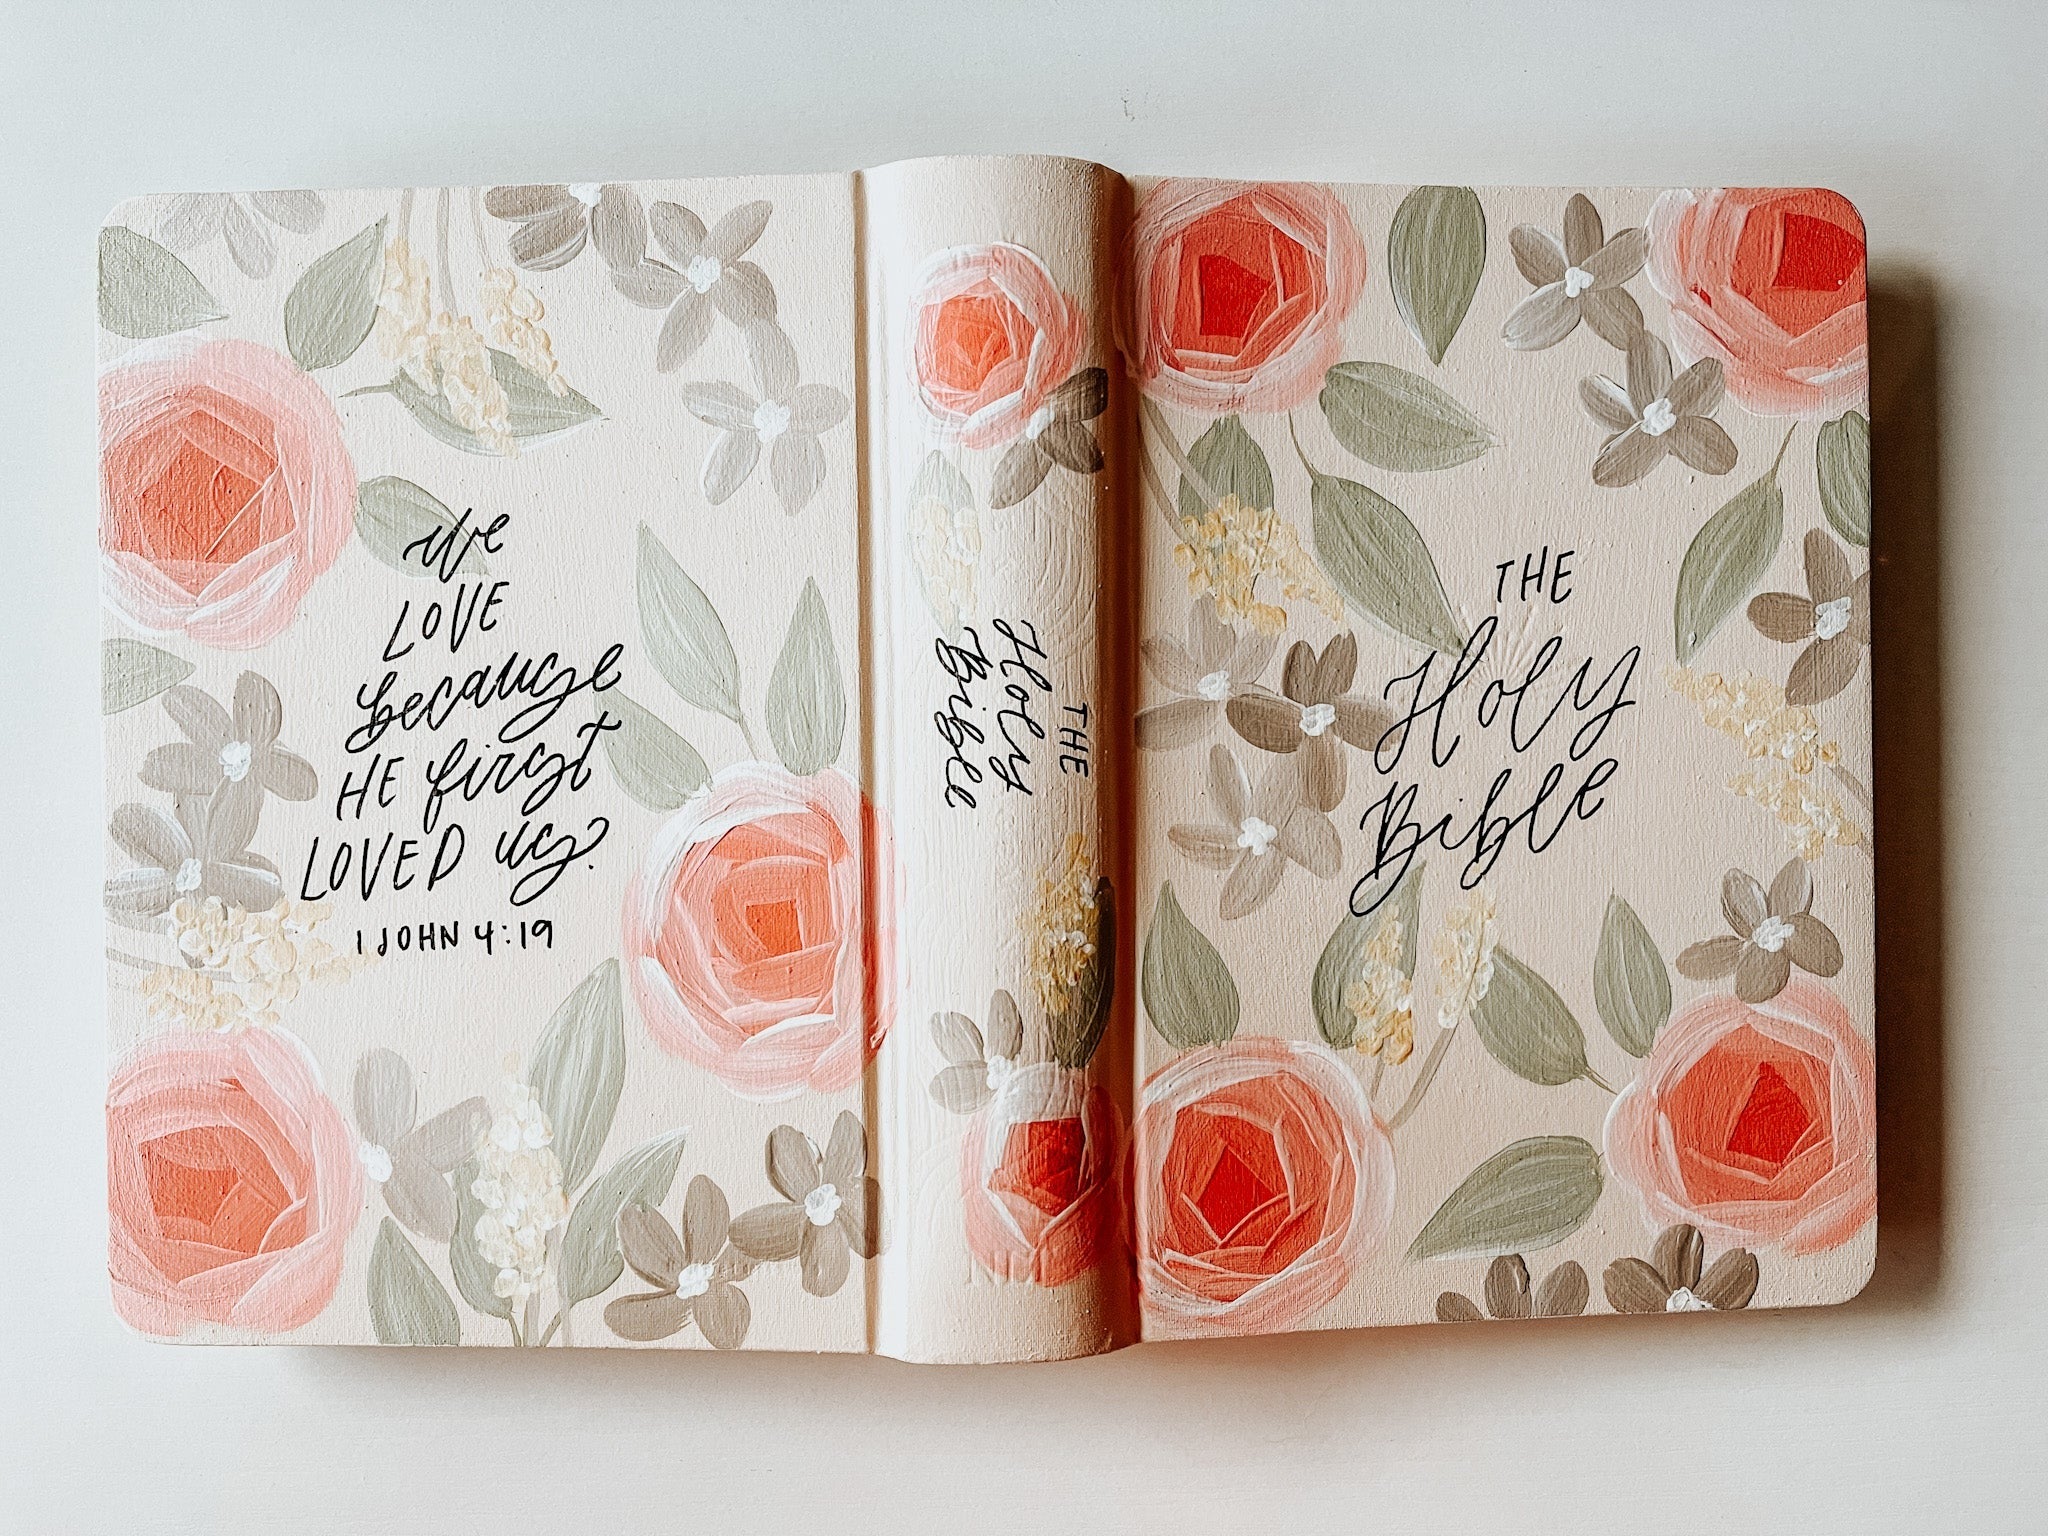 We
LOVE
because
HE first
LOVED us.
1 JOHN 4:19
THE
Holy
Bible
THE
Holy
Bible